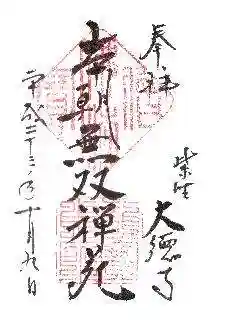 奉拝
紫野 大徳寺
本朝無双禅苑
平成二十三年十月九日